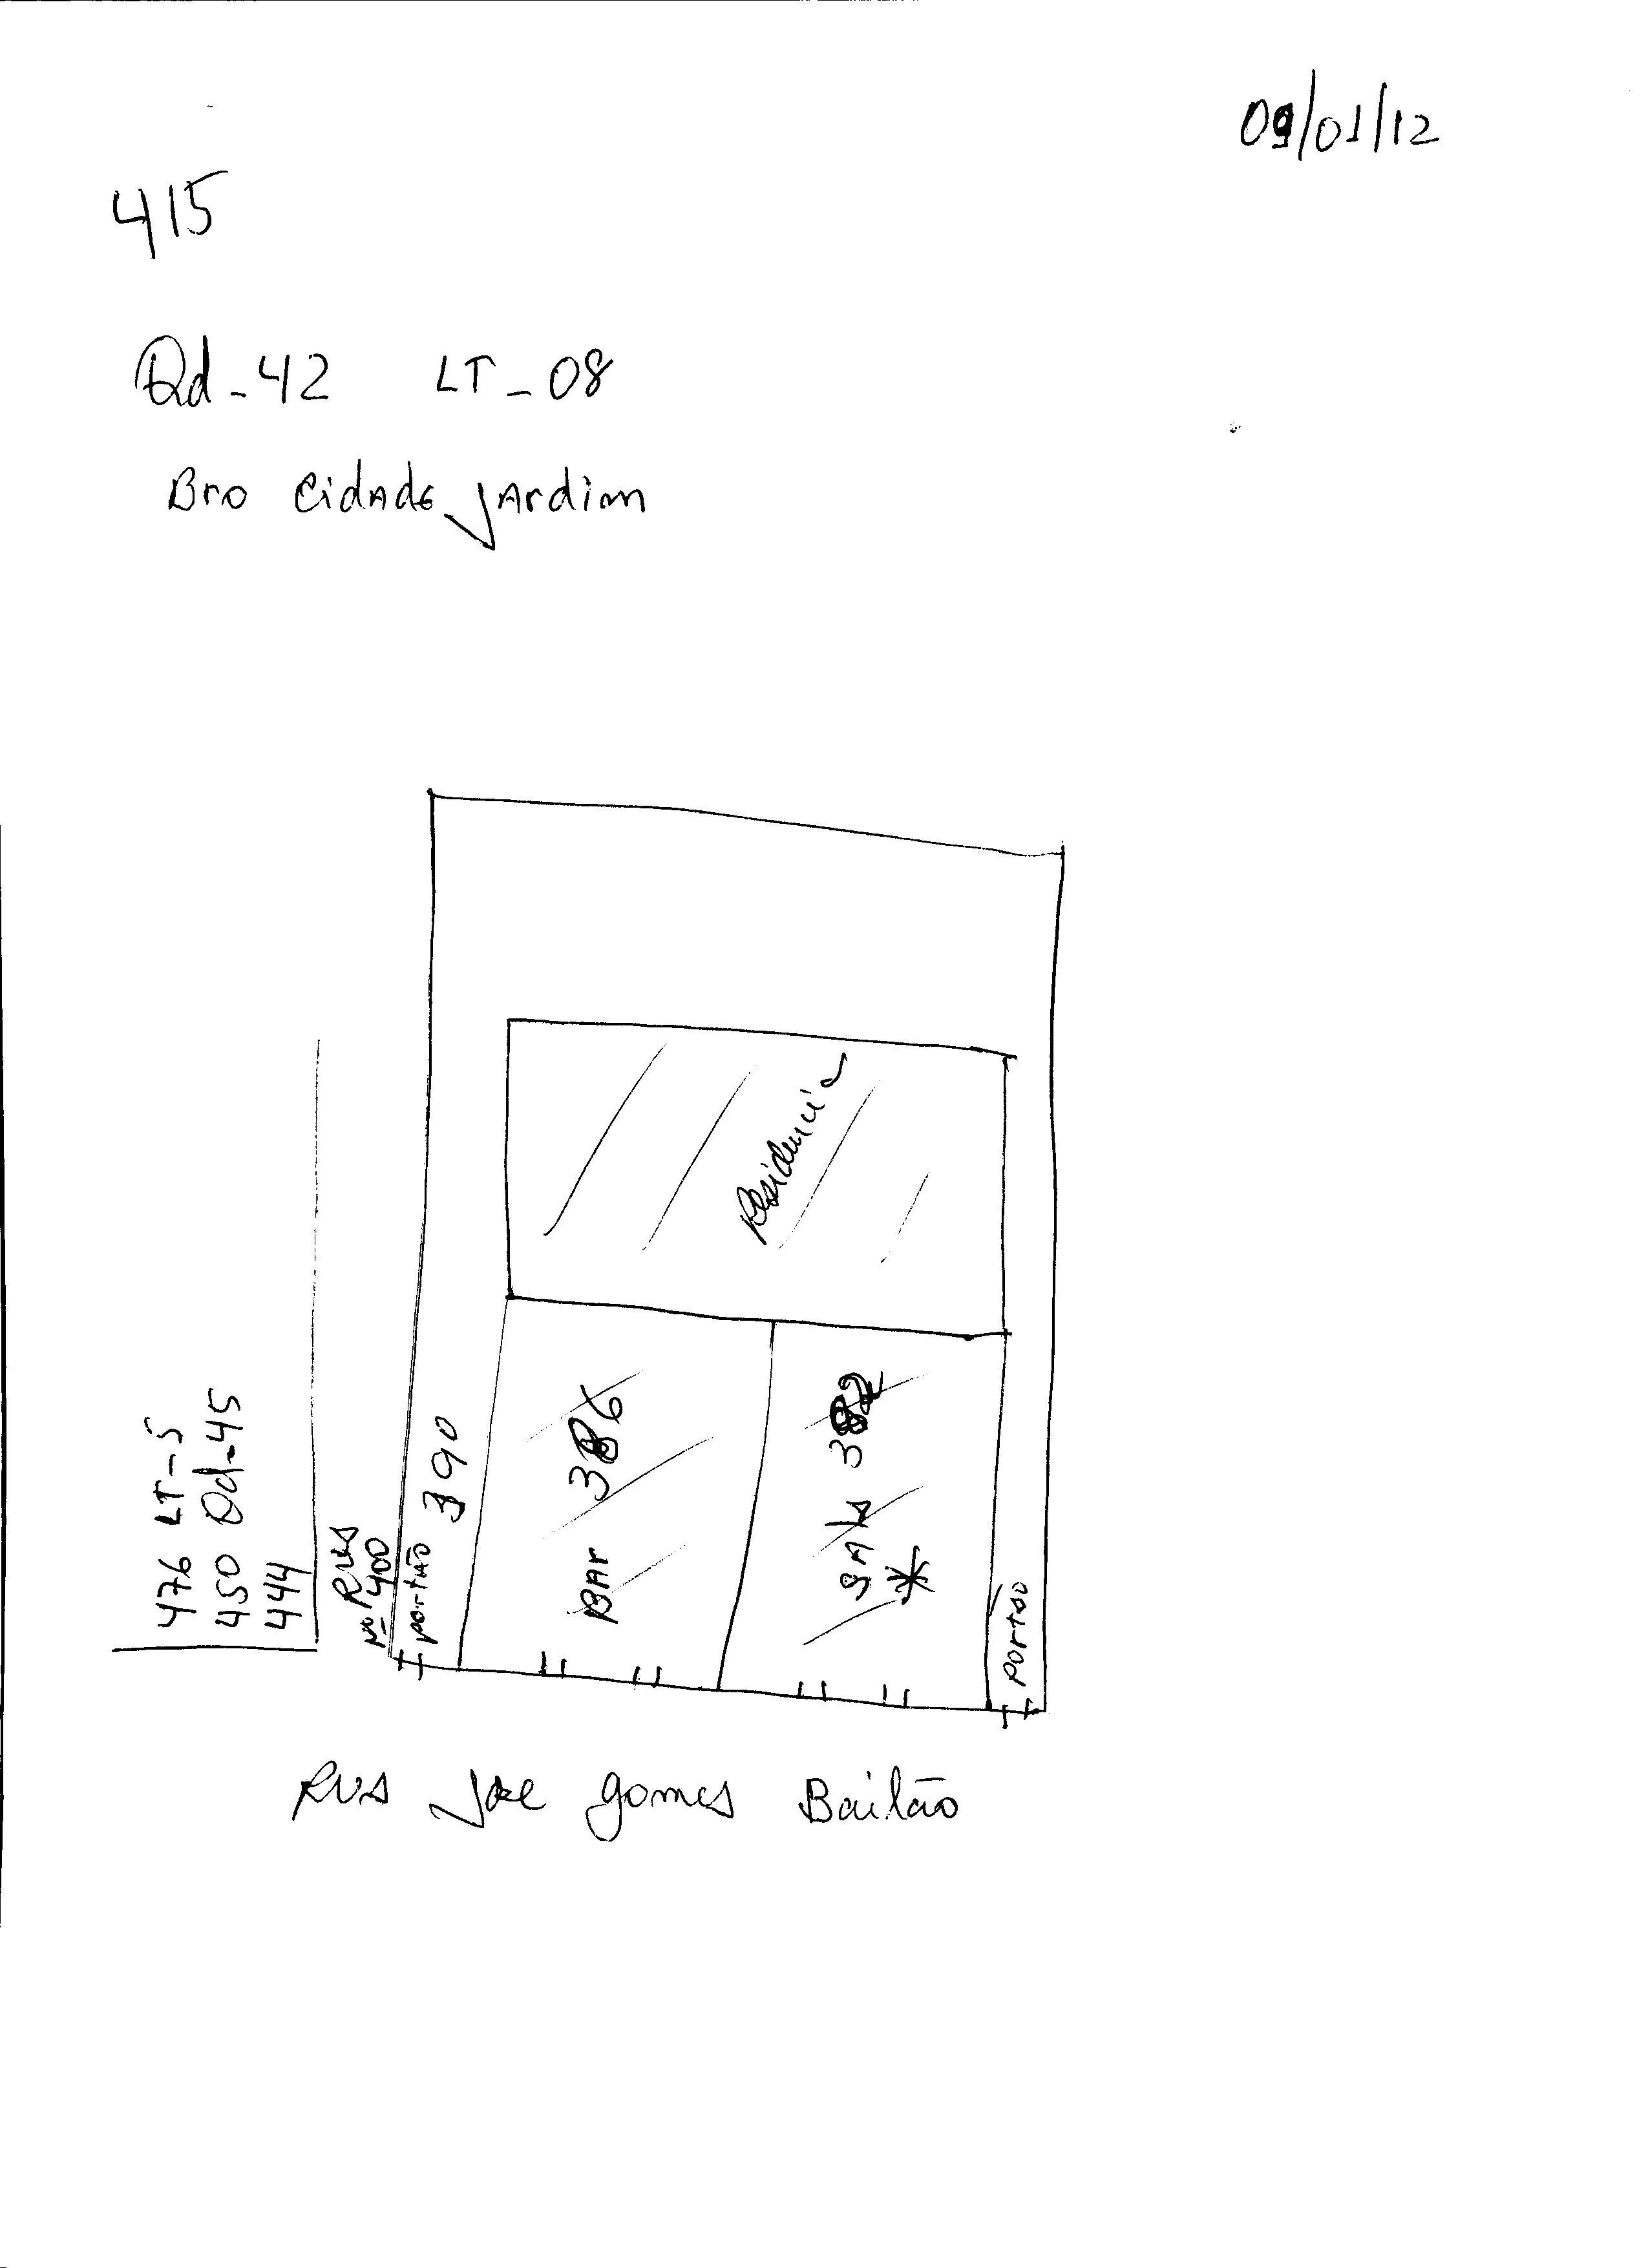 09/01/12
415
Qd-42 LT-08
Bro Cidade Jardim
Residencia
476 LT-5
450 Qd-45
444
RUA
Nº 400
portão
390
BAr 386
SAlA 382
*
Portão
RUA José gomes Bailão